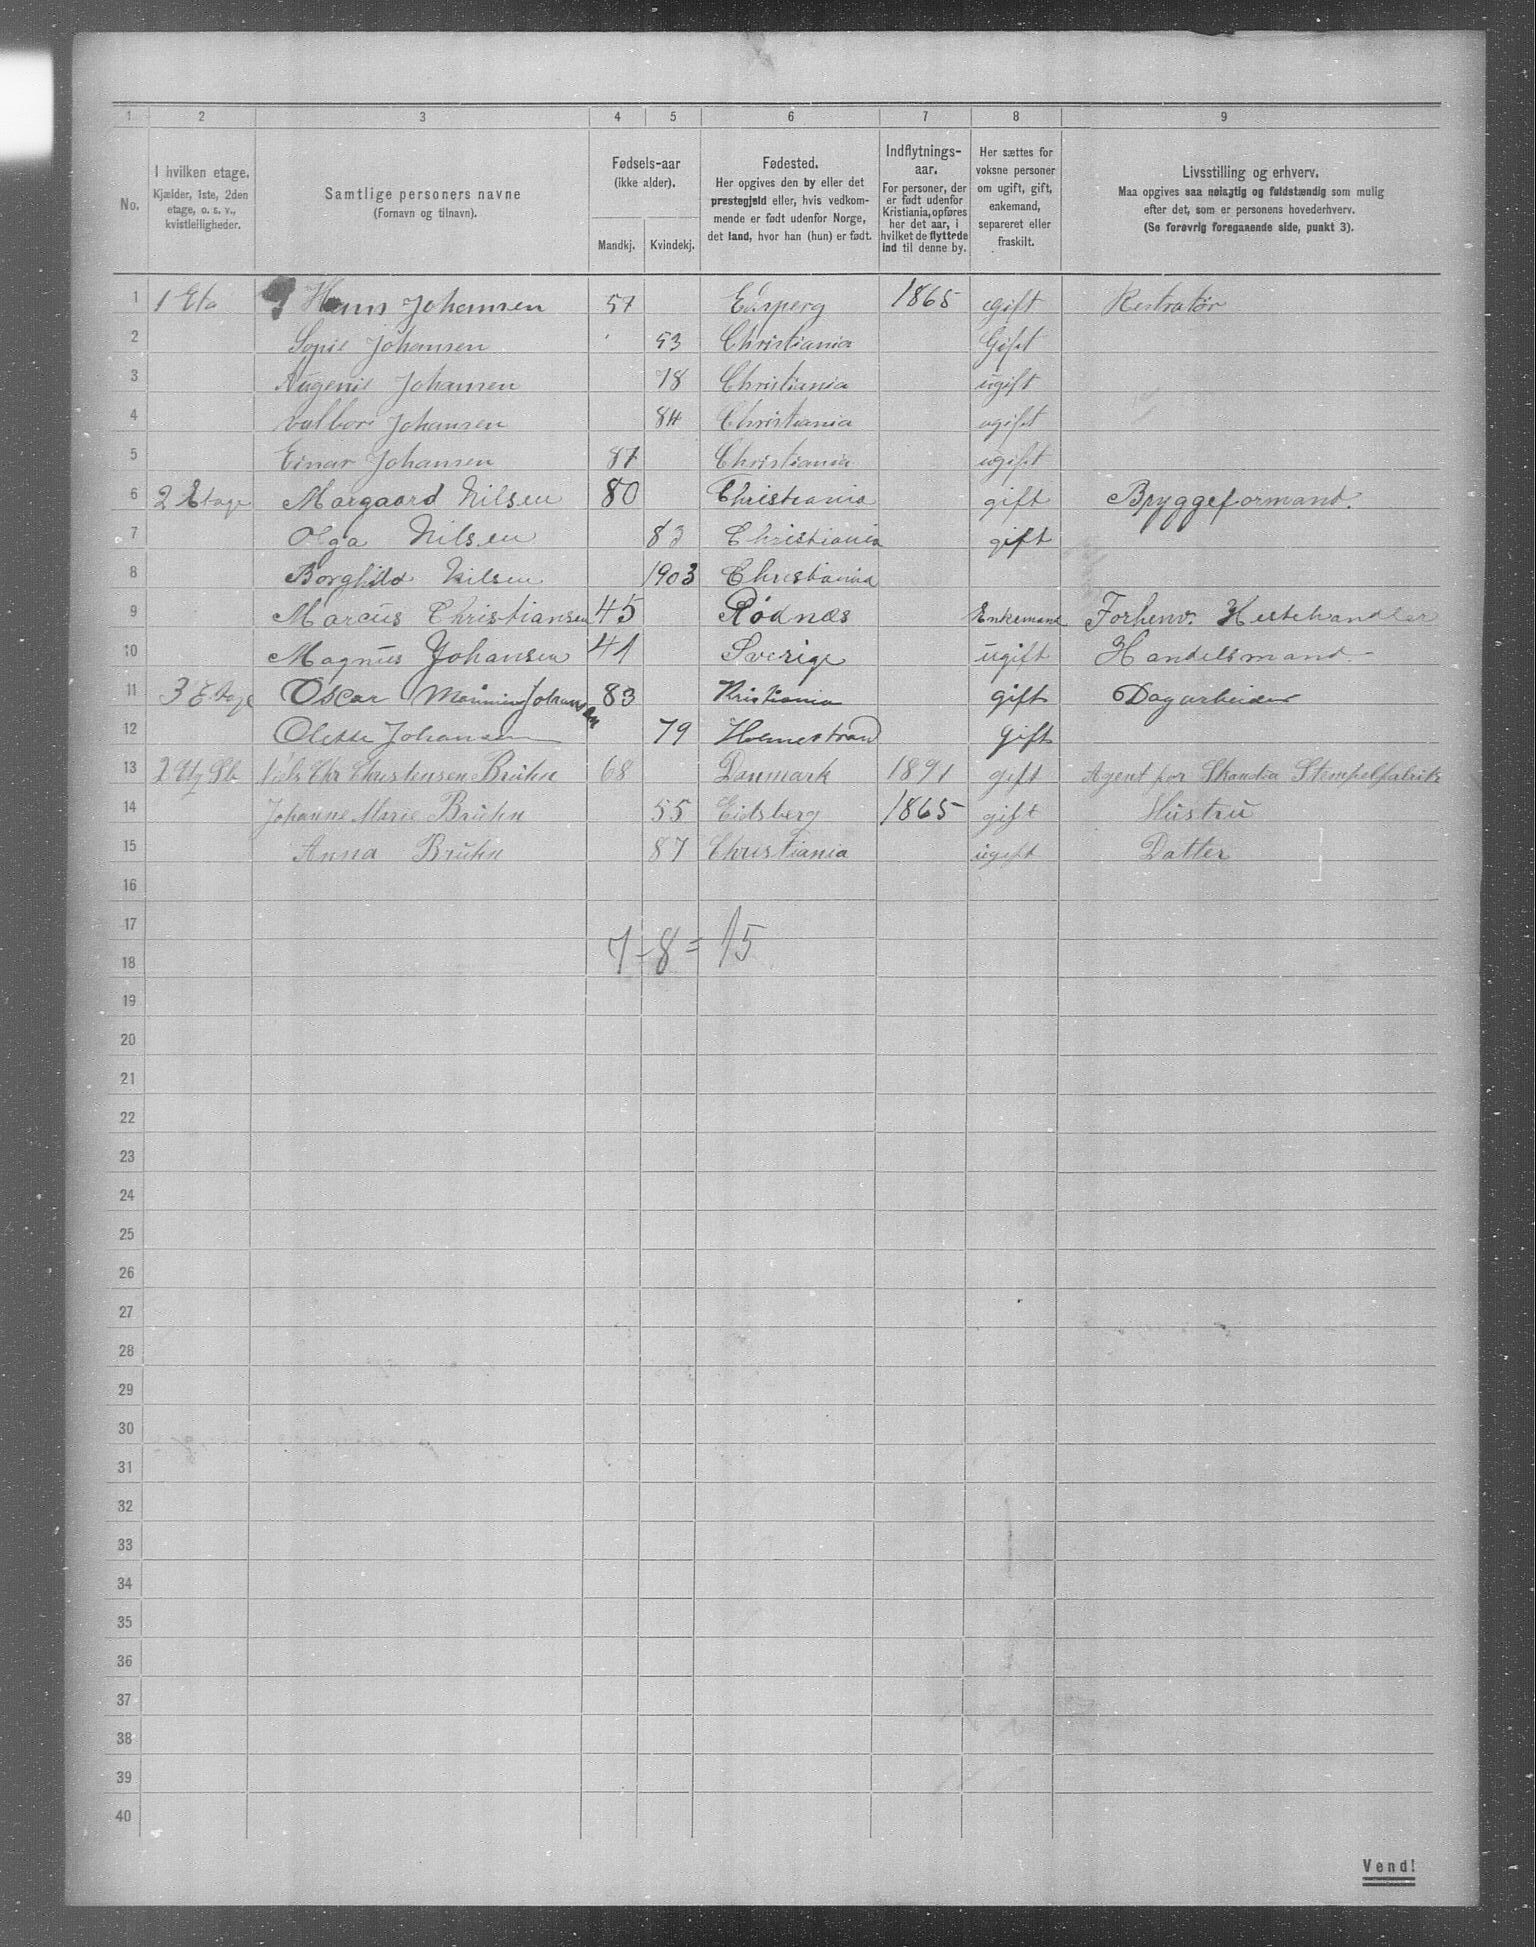 1 2 3 4 5 6 7 8 9
No.
I hvilken etage.
Kjælder, 1ste, 2den
etage, o. s. v.,
kvistleiligheder.
Samtlige personers navne
(Fornavn og tilnavn).
Fødsels-aar
(ikke alder).
Mandkj. Kvindekj.
Fødested.
Her opgives den by eller det
prestegjeld eller, hvis vedkom-
mende er født udenfor Norge,
det land, hvor han (hun) er født.
Indflytnings-
aar.
For personer, der
er født udenfor
Kristiania, opføres
her det aar, i
hvilket de flyttede
ind til denne by.
Her sættes for
voksne personer
om ugift, gift,
enkemand,
separeret eller
fraskilt.
Livsstilling og erhverv.
Maa opgives saa nøiagtig og fuldstændig som mulig
efter det, som er personens hovederhverv.
(Se forøvrig foregaaende side, punkt 3).
1 1 Eta Hans Johansen 57 Edsperg 1865 gift Restratør
2 Sopie Johansen 53 Christiania Gift
3 Augenie Johansen 78 Christiania ugift
4 Valbor Johansen 84 Christiania ugift
5 Einar Johansen 87 Christiania ugift
6 2 Etage Margaard Nilsen 80 Christiania gift Bryggeformand.
7 Olga Nilsen 83 Christiania gift
8 Borghild Nilsen 1903 Christiania
9 Marcus Christiansen 45 Rødnæs Enkemand Forhenv. Hestehandler
10 Magnus Johansen 41 Sverige ugift Handelsmand.
11 3 Etage Oscar Johansen 83 Kristiania gift Dagarbeider
12 Olette Johansen 79 Holmestrand gift
13 2 Etg Niels Chr Christensen Bruhn 68 Danmark 1891 gift Agent for Skandia Stempelfabrik
14 Johanne Marie Bruhn 55 Eidsberg 1865 gift Hustru
15 Anna Bruhn 87 Christiania ugift Datter
16
17
7 - 8 = 15
18
19
20
21
22
23
24
25
26
27
28
29
30
31
32
33
34
35
36
37
38
39
40
Vend!